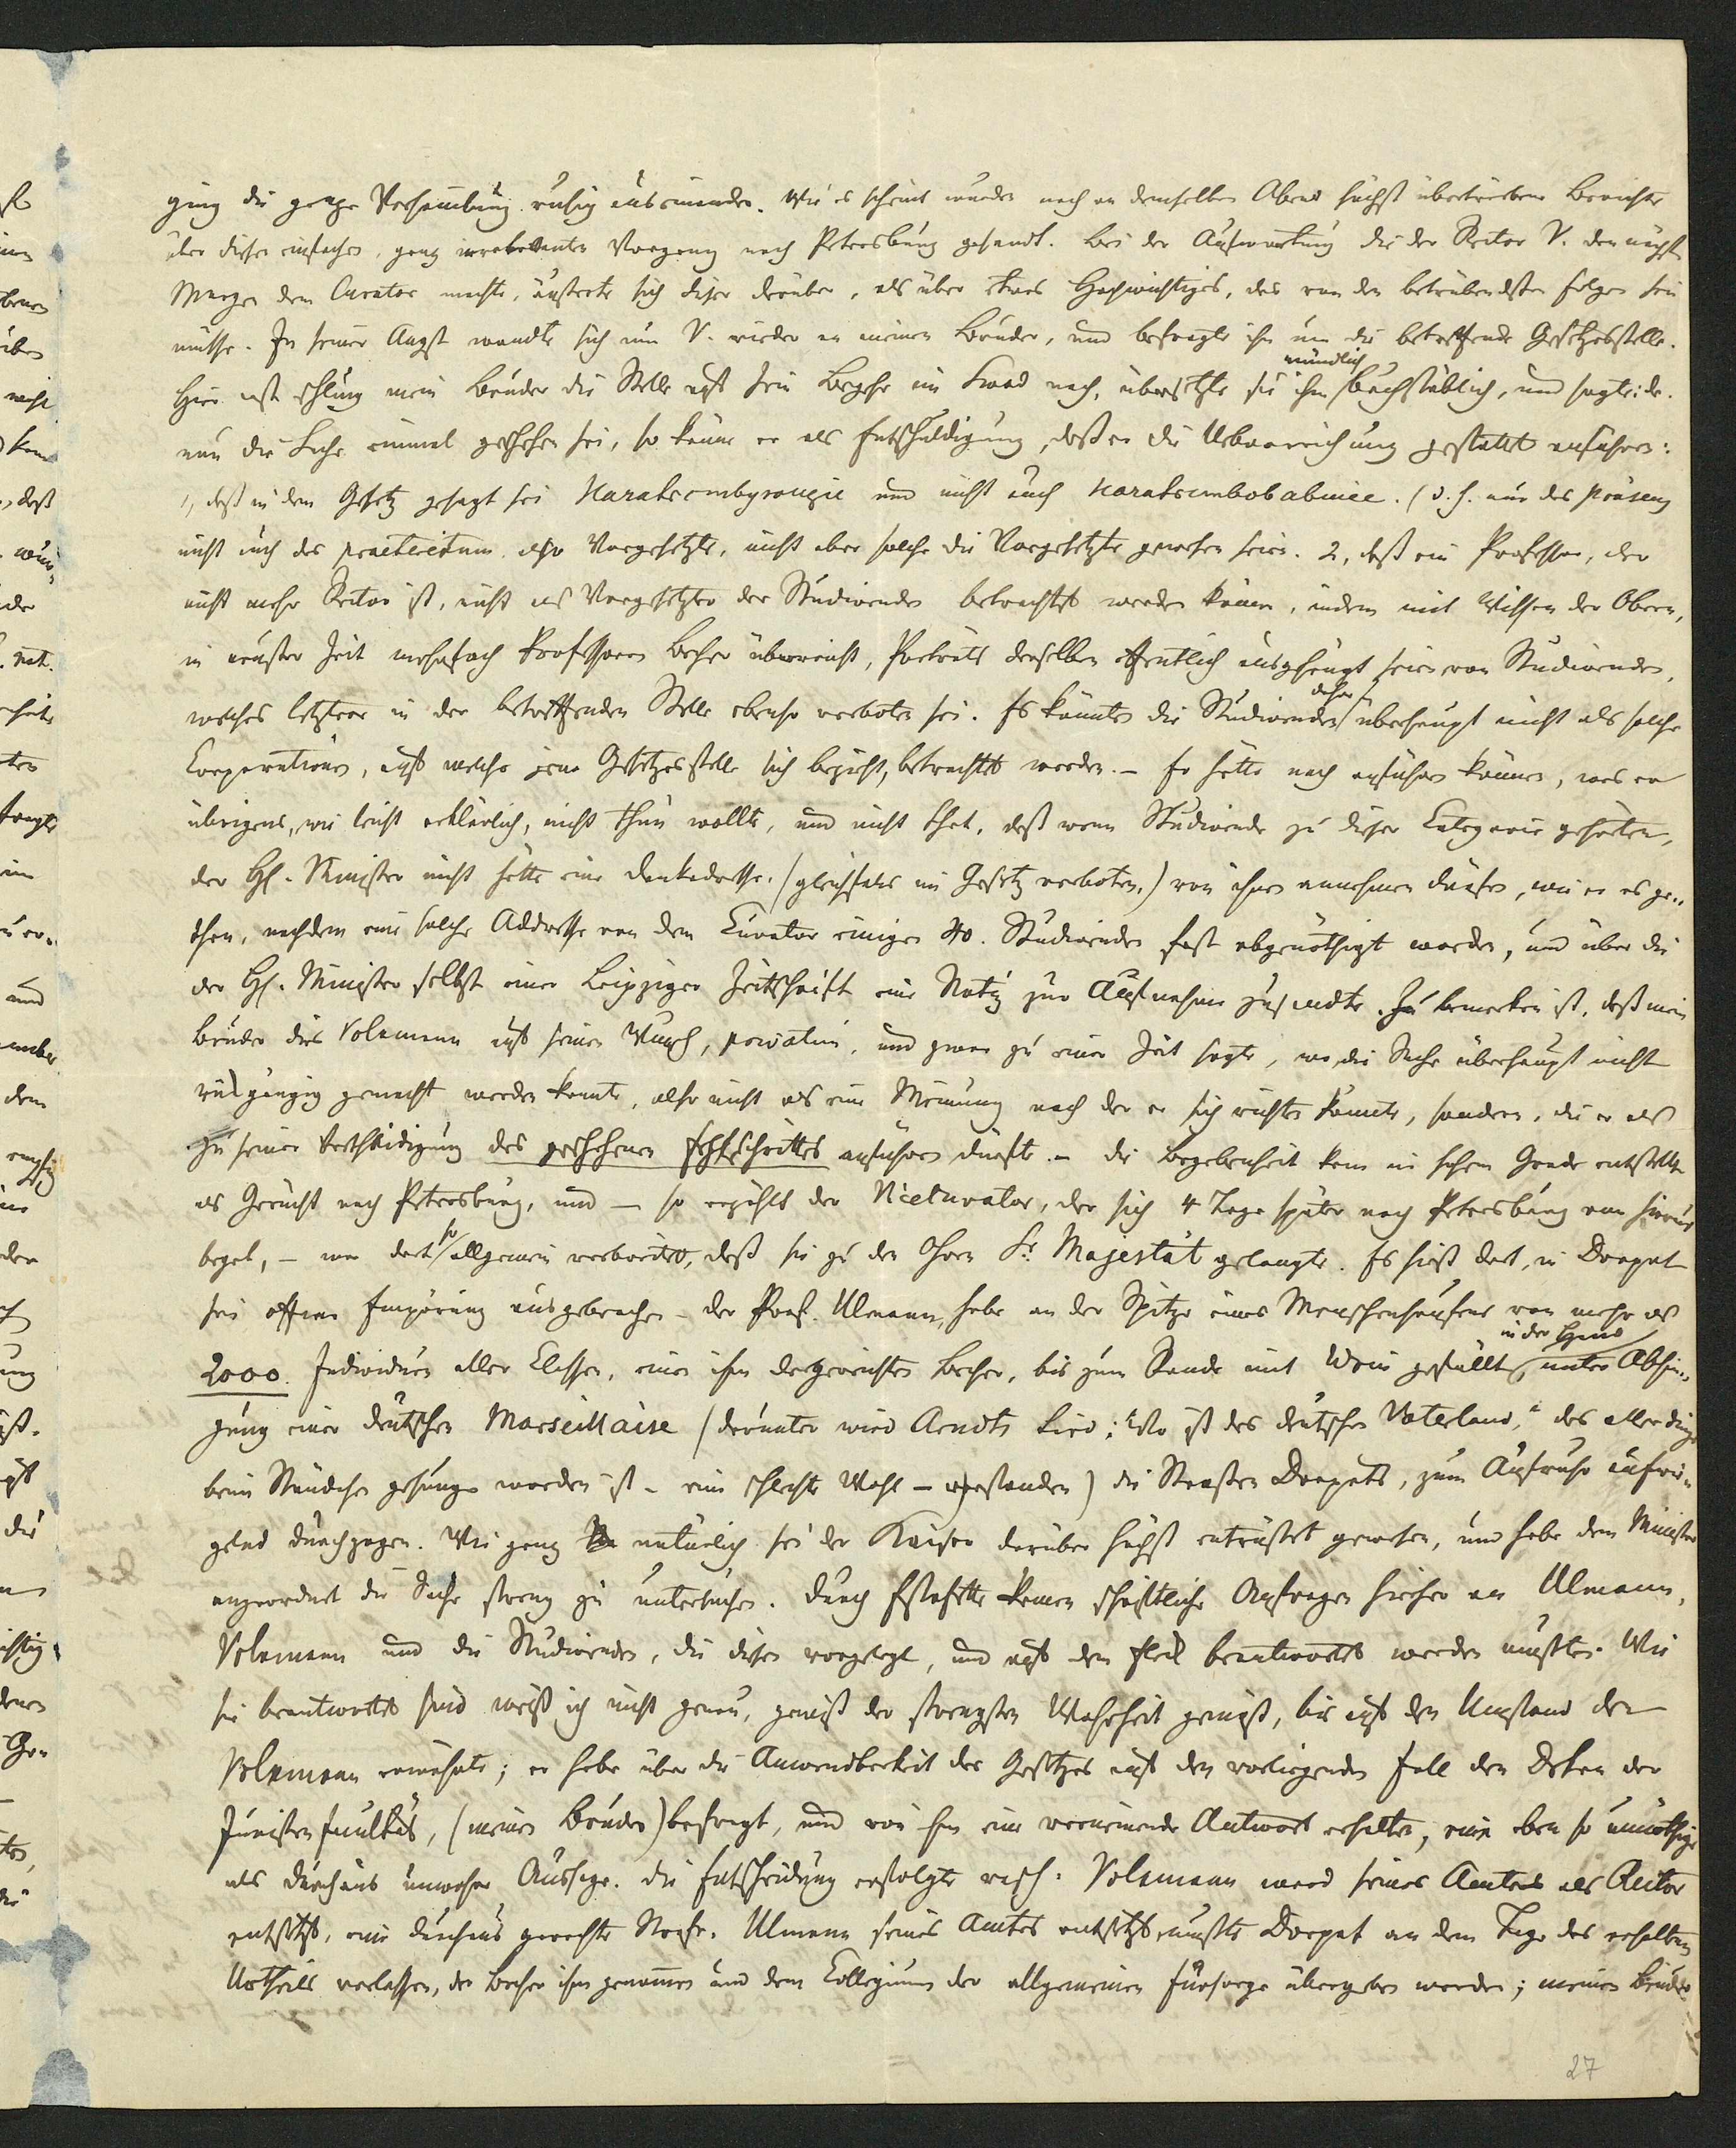 ging die ganze Versammlung ruhig auseinander. Wie es scheint wurden noch an demselben Abend höchst übertriebene Berichte
über diesen einfachen, ganz irrelevanten Vorgang nach Petersburg gesandt. Bei der Aufwartung die der Rector V. den nächst.
Morgen dem Curator machte, äußerte sich dieser darüber, als über etwas Hochwichtiges, das von den betrübendsten Folgen sein
müsse. In seiner Angst wandte sich nun V. wieder an meinen Bruder, und befragte ihn um die betreffende Gesetzesstelle.
Hier erst schlug mein Bruder die Stelle auf sein Begehr im Swod nach, übersetzte sie ihm mündlich buchstäblich, und sagte: da
nun die Sache einmal geschehen sei, so könne er als Entschuldigung, daß er die Ueberreichung gestattet anführen:
1, daß in dem Gesetz gesagt sei началствующие und nicht auch началствовавшие. (d. h. nur das präsens
nicht auch das praeteritum, also Vorgesetzte, nicht aber solche die Vorgesetzte gewesen seien. 2, daß ein Professor, der
nicht mehr Rector ist, nicht als Vorgesetzter der Studirenden betrachtet werden könne, indem mit Wissen der Obern,
in neuster Zeit mehrfach Professoren Becher überreicht, Portraits derselben öffentlich ausgehängt seien von Studirenden,
welches letztere in der betreffenden Stelle ebenso verboten sei. Es könnten die Studirenden daher überhaupt nicht als solche
Corporationen, auf welche jene Gesetzesstelle sich bezieht, betrachtet werden. – Er hätte noch anführen können, was er
übrigens, wie leicht erklärlich, nicht thun wollte, und nicht that, daß wenn Studirende zu dieser Categorie gehörten,
der H. Minister nicht hätte eine Dankadresse (gleichfalls im Gesetz verboten) von ihnen annehmen dürfen, wie er es ge-
than, nachdem eine solche Addresse von dem Curator einigen 40. Studirenden fast abgenöthigt worden, und über die
der H. Minister selbst einer Leipziger Zeitschrift eine Notiz zur Aufnahme zusandte. Zu bemerken ist, daß mein
Bruder dies Volkmann auf seinen Wunsch, privatim, und zwar zu einer Zeit sagte, wo die Sache überhaupt nicht
rückgängig gemacht werden konnte, also nicht als eine Meinung nach der er sich richten konnte, sondern, die er als
zu seiner Vertheidigung des geschehenen Fehlschrittes anführen dürfte. – Die Begebenheit kam in hohem Grade entstellt
als Gerücht nach Petersburg, und – so erzählt der Vicecurator, der sich 4 Tage später nach Petersburg von hieraus
begab, – war dort so allgemein verbreitet, daß sie zu den Ohren Sr Majestät gelangte. Es hieß dort, in Dorpat
sei offene Empörung ausgebrochen – der Prof. Ulmann, habe an der Spitze eines Menschenhaufens von mehr als
2000. Individuen aller Classen, einen ihm dargereichten Becher, bis zum Rande mit Wein gefüllt in der Hand unter Absin-
gung einer deutschen Marseillaise (darunter wird Arndts Lied: "Wo ist des deutschen Vaterland," das allerdings
beim Ständchen gesungen worden ist – eine schlechte Wahl – verstanden) die Strassen Dorpats, zum Aufruhr aufwie-
gelnd durchzogen. Wie ganz natürlich sei der Kaiser darüber höchst entrüstet gewesen, und habe dem Minister
angeordnet die Sache streng zu untersuchen. Durch Estafette kamen schriftliche Anfragen hierher an Ulmann,
Volkmann und die Studirenden, die diesen vorgelegt, und auf dem Fleck beantwortet werden mußten. Wie
sie beantwortet sind weiß ich nicht genau, gewiß der strengsten Wahrheit gemäß, bis auf den Umstand den
Volkmann erwähnte; er habe über die Anwendbarkeit des Gesetzes auf den vorliegenden Fall den Dekan der
Juristenfacultät, (meinen Bruder) befragt, und von ihm eine verneinende Antwort erhalten, eine eben so unnöthige
als durchaus unwahre Aussage. Die Entscheidung erfolgte rasch: Volkmann ward seines Amtes als Rector
entsetzt, eine durchaus gerechte Strafe. Ulmann seines Amtes entsetzt, mußte Dorpat an dem Tage des erhaltenen
Urtheils verlassen, der Becher ihm genommen und dem Collegium der allgemeinen Fürsorge übergeben werden; meinen Bruder
27